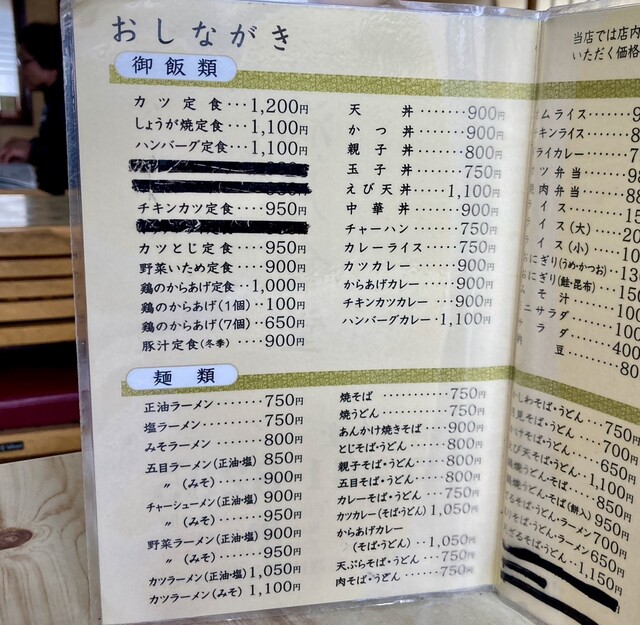 おしながき
御飯類
カツ定食・・・1,200円
しょうが焼定食・・・1,100円
ハンバーグ定食・・・1,100円
チキンカツ定食・・・950円
カツとじ定食・・・950円
野菜いため定食・・・900円
鶏のからあげ定食・・1,000円
鶏のからあげ(1個)・・100円
鶏のからあげ(7個)・・650円
豚汁定食(冬季)・・・900円
天丼・・・・・・・900円
かつ丼・・・・・・900円
親子丼・・・・・・800円
玉子丼・・・・・・750円
えび天丼・・・1,100円
中華丼・・・・・・900円
チャーハン・・・・・750円
カレーライス・・・・750円
カツカレー・・・・・900円
からあげカレー・・・900円
チキンカツカレー・・・900円
ハンバーグカレー・1,100円
麺類
正油ラーメン・・・・・750円
塩ラーメン・・・・・・750円
みそラーメン・・・・・800円
五目ラーメン(正油・塩) 850円
〃(みそ)・・・・・・900円
チャーシューメン(正油・塩) 900円
〃(みそ)・・・・・・950円
野菜ラーメン(正油・塩) 900円
〃(みそ)・・・・・・950円
カツラーメン(正油・塩) 1,050円
カツラーメン(みそ)・・1,100円
焼そば・・・・・・・・・750円
焼うどん・・・・・・・・750円
あんかけ焼きそば・・・900円
とじそば・うどん・・・・800円
親子そば・うどん・・・・800円
五目そば・うどん・・・・800円
カレーそば・うどん・・・750円
カツカレー(そば・うどん) 1,050円
からあげカレー
(そば・うどん)・・1,050円
天ぷらそば・うどん・・・750円
肉そば・うどん・・・・・750円
当店では店内
いただく価格
ムライス・・・・・
キンライス・・・・
ライカレー・・・・
ツ弁当・・・・・
肉弁当・・・・・
イス・・・・・・
イス(大)・・・・
イス(小)・・・・
にぎり(うめ・かつお)・・
にぎり(鮭・昆布)・・・
そ汁・・・・・・
ニサラダ・・・・
ラダ・・・・・・
豆・・・・・・
しわそば・うどん・・・750円
見そば・うどん・・・700円
けそば・うどん・・・650円
び天そば・うどん・1,100円
焼うどん・そば・・・850円
焼うどん・そば(餅入) 950円
るそば・うどん・ラーメン 700円
りそば・うどん・ラーメン 650円
ざるそば・うどん・・1,150円